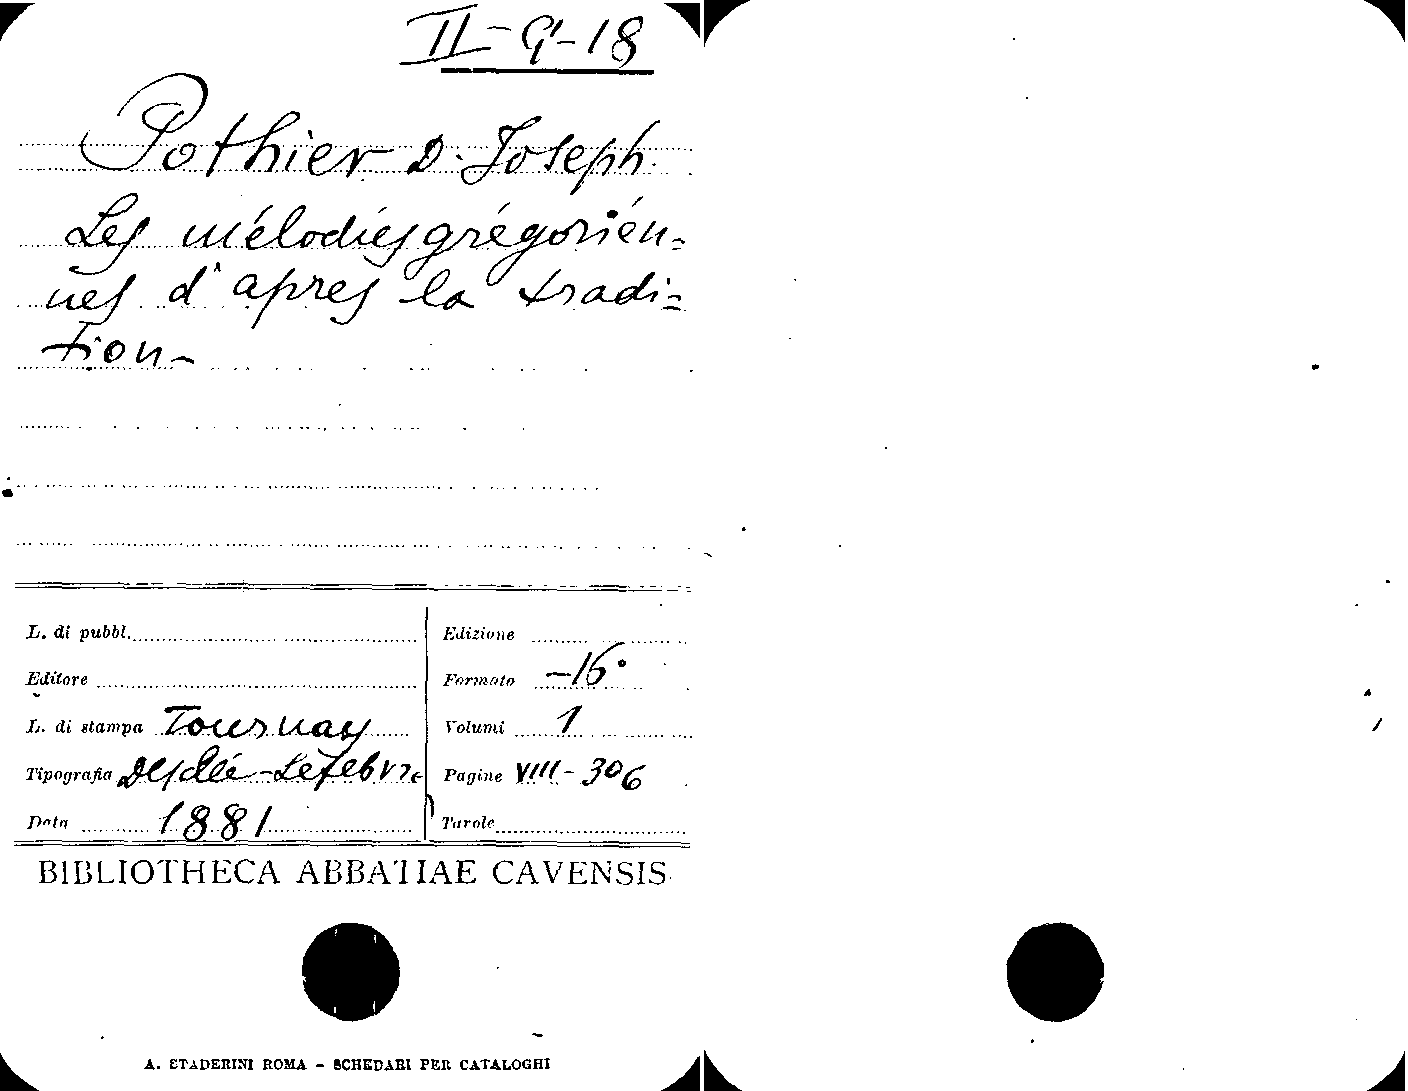 II-G-18
Pothier D. Joseph
Les mélodies grégorien=
nes d'apres la tradi=
tion-
L. di pubbl.
Editore
L. di stampa Tournay
Tipografia Desclée-Lefebvre
Data 1881
Edizione
Formato -16°
Volumi 1
Pagine VIII-306
Tavole
BIBLIOTHECA ABBATIAE CAVENSIS
A. STADERINI ROMA - SCHEDARI PER CATALOGHI